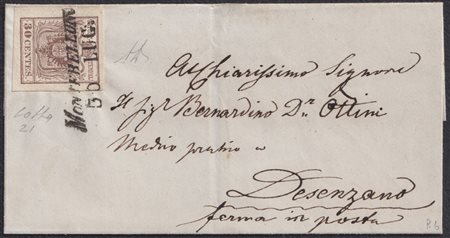 30 CENTES.
MONTECHIARI
5 LUG.
All Chiarissimo Signore
Il Sigr Bernardino Dr. Ottini
Medico pratico a
Desenzano
ferma in posta
Lotto
21